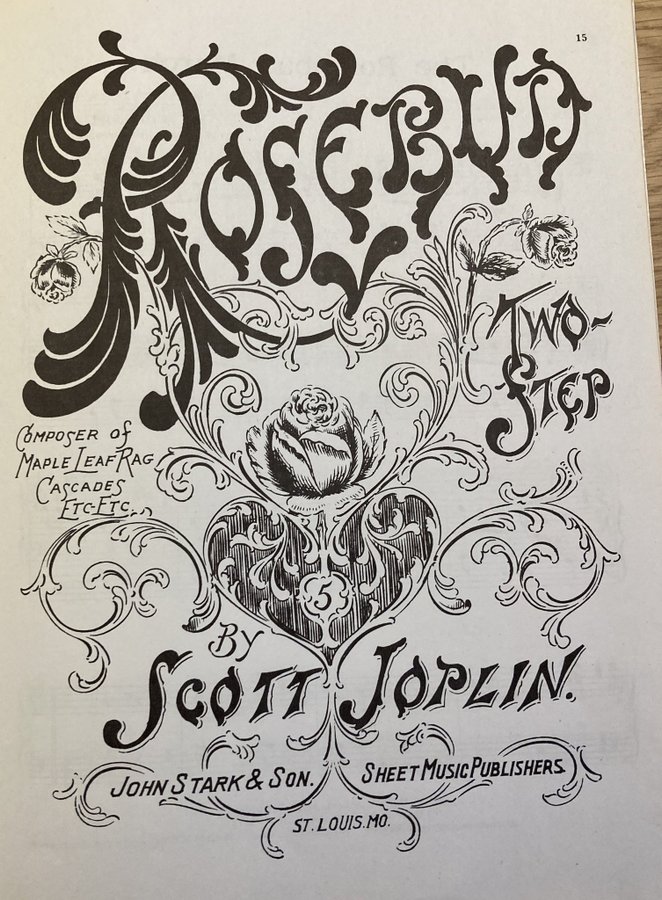 15
ROSEBUD
TWO-
STEP
COMPOSER OF
MAPLE LEAF RAG
CASCADES
ETC-ETC.
5
BY
SCOTT JOPLIN.
JOHN STARK & SON. SHEET MUSIC PUBLISHERS.
ST. LOUIS. MO.